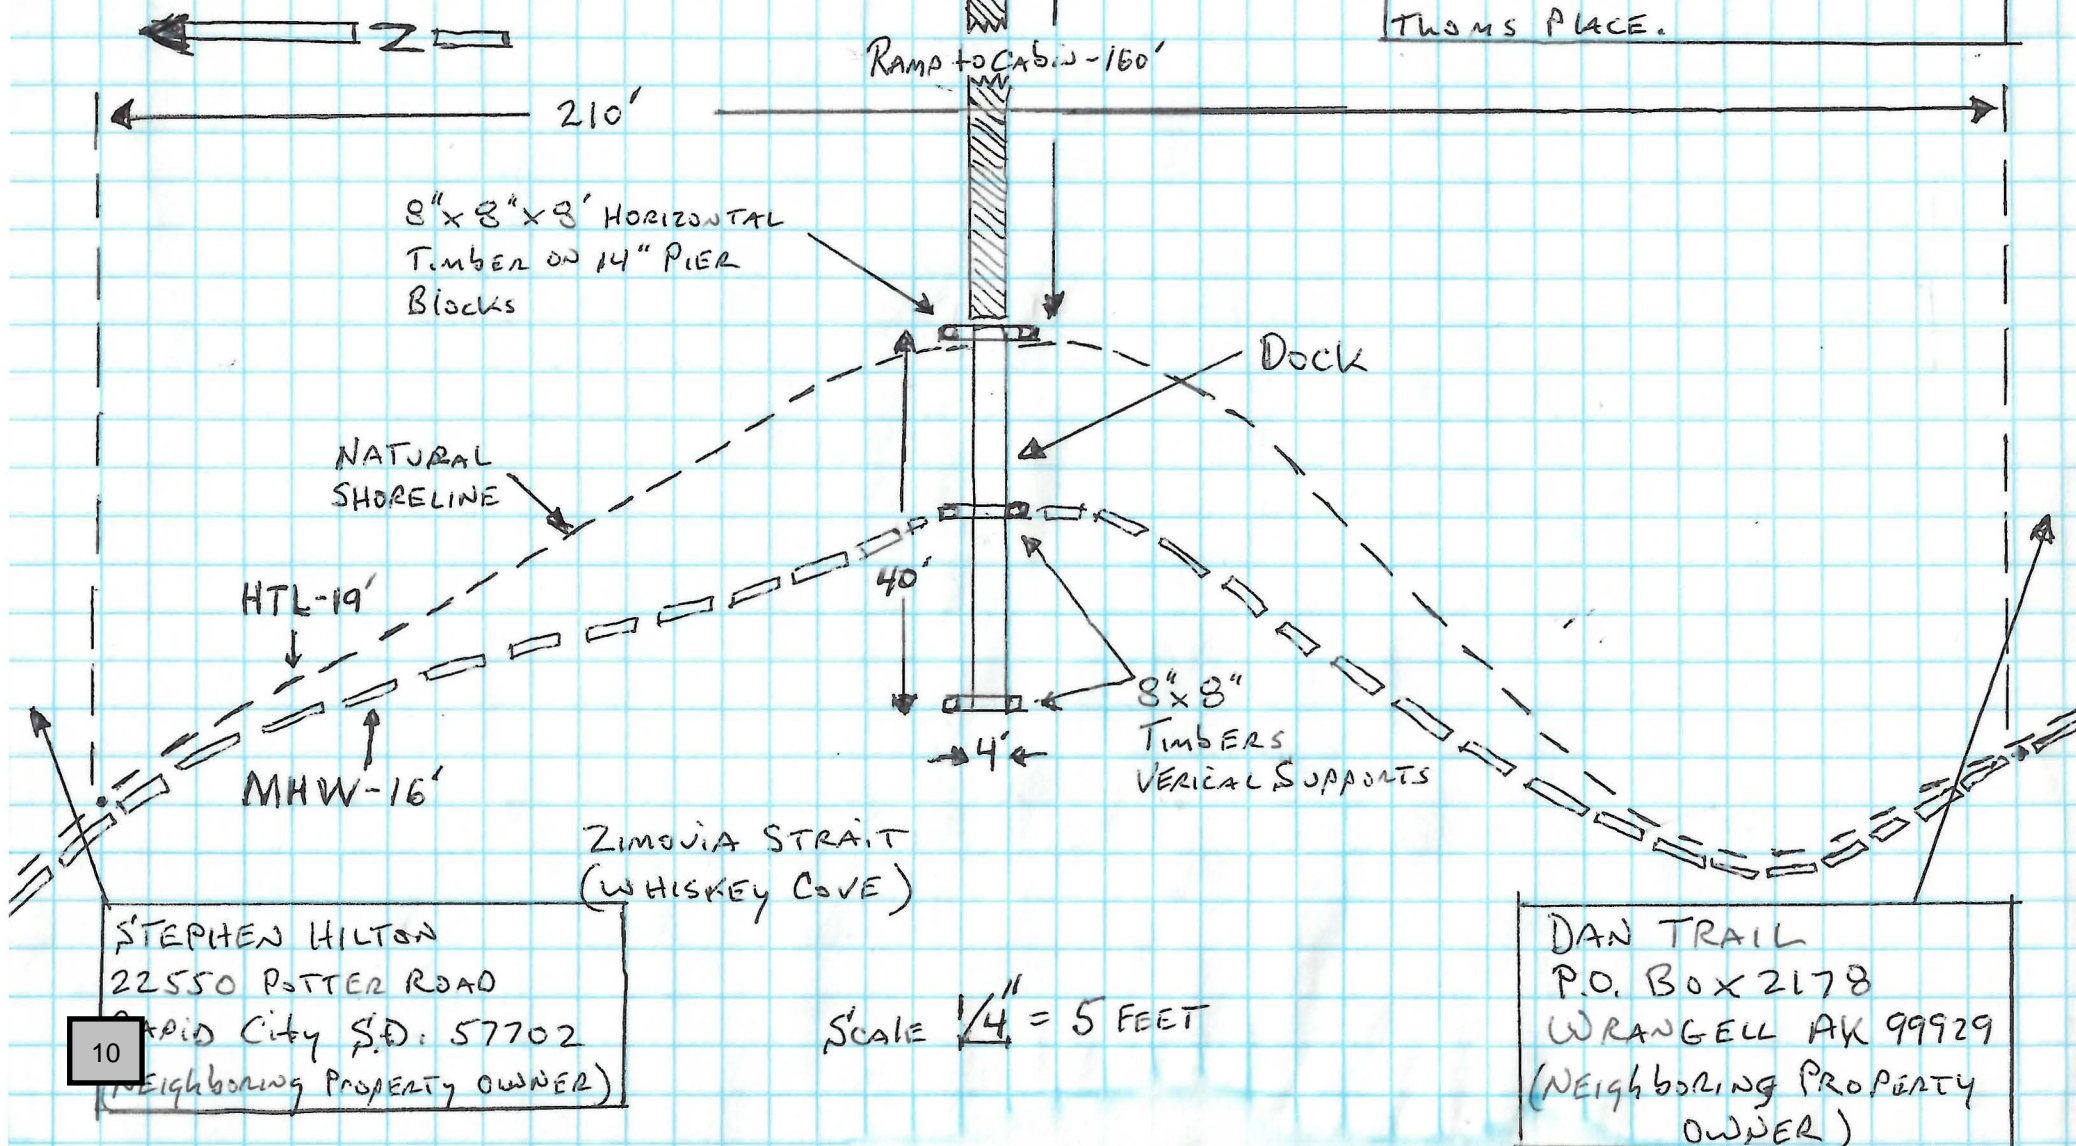 THOMS PLACE.
N
RAMP to CABIN-160'
210'
8"x8"x8' HORIZONTAL
TimbER ON 14" PIER
Blocks
DOCK
NATURAL
SHORELINE
HTL-19'
40'
8"x8"
TimbERS
VERICAL SUPPORTS
4'
MHW-16'
ZIMOVIA STRAiT
(WHISKEY COVE)
STEPHEN HILTON
22550 POTTER ROAD
RAPiD City S.D. 57702
(NEighboRiNg PROPERTY OWNER)
10
SCALE 1/4" = 5 FEET
DAN TRAIL
P.O. BOX 2178
WRANGELL AK 99929
(NEighboRiNg PROPERTY
OWNER)